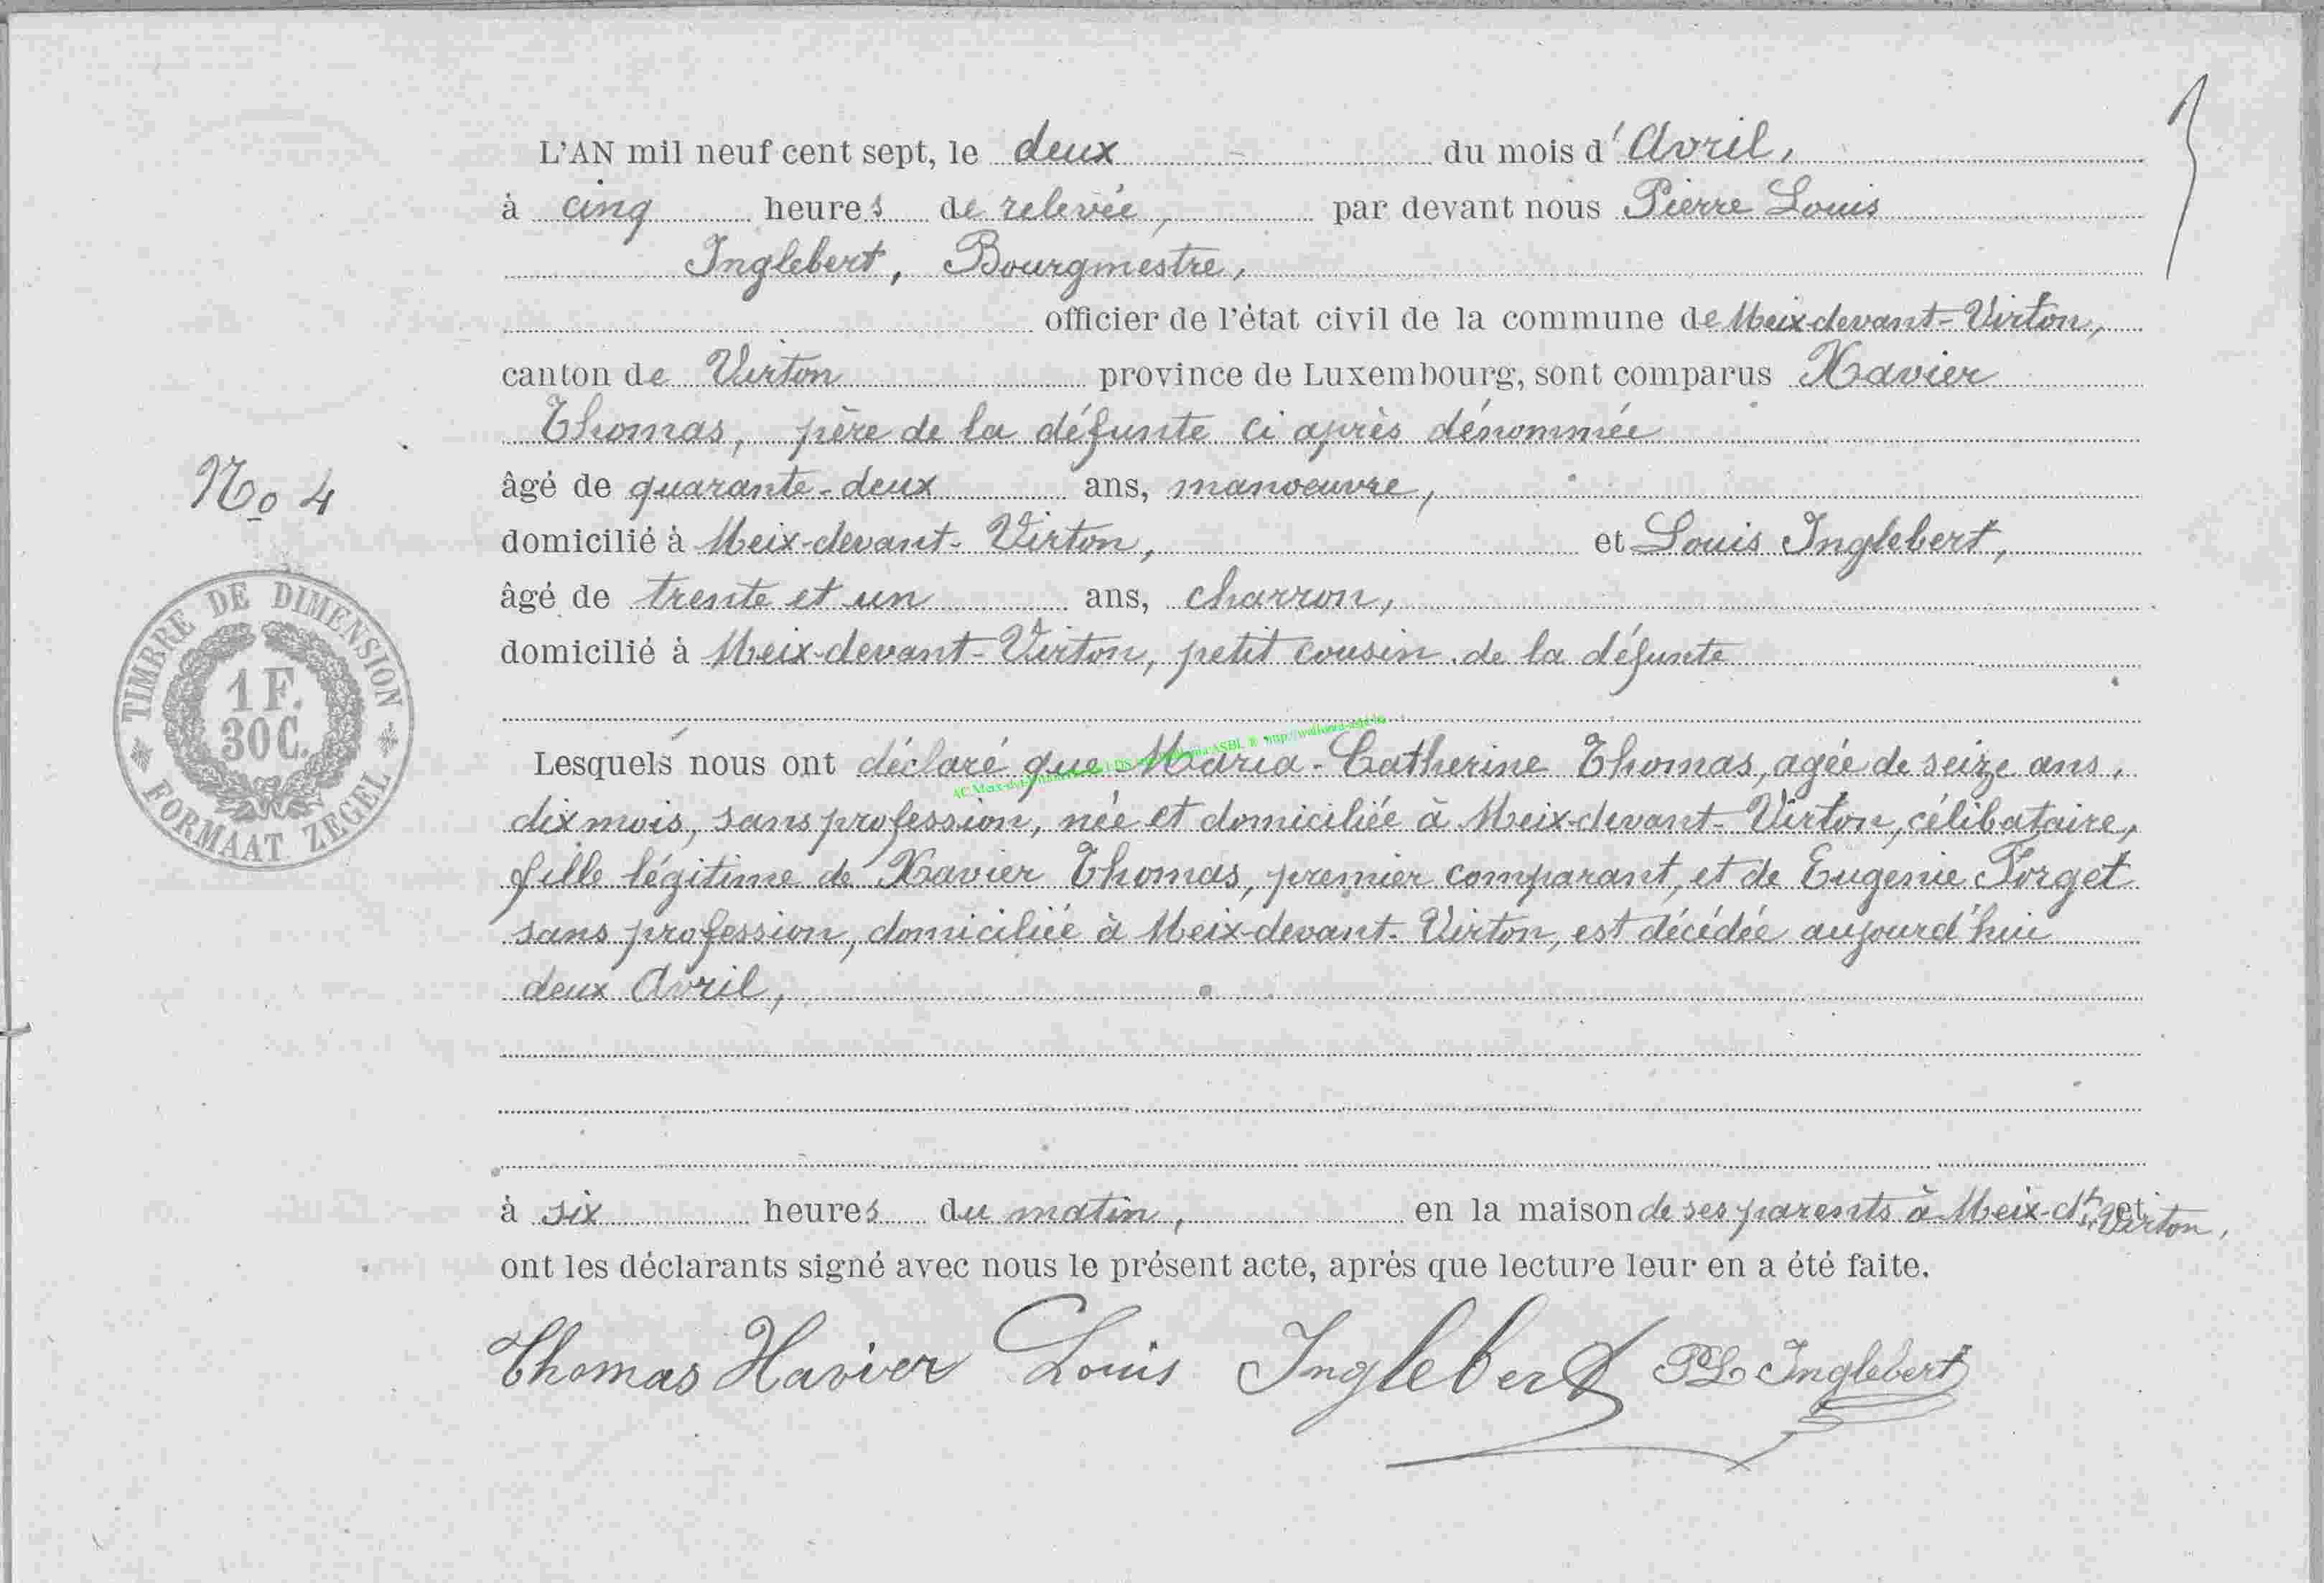 L'AN mil neuf cent sept, le deux du mois d'Avril,
à cinq heures de relevée, par devant nous Pierre Louis
Inglebert, Bourgmestre,
officier de l'état civil de la commune de Meix-devant-Virton,
canton de Virton province de Luxembourg, sont comparus Xavier
Thomas, père de la défunte ci après dénommée
No 4
âgé de quarante-deux ans, manoeuvre,
domicilié à Meix-devant-Virton, et Louis Inglebert,
âgé de trente et un ans, charron,
domicilié à Meix-devant-Virton, petit cousin de la défunte
TIMBRE DE DIMENSION
1 F.
30 C.
FORMAAT ZEGEL
Lesquels nous ont déclaré que Maria-Catherine Thomas, agée de seize ans,
dix mois, sans profession, née et domiciliée à Meix-devant-Virton, célibataire,
fille légitime de Xavier Thomas, premier comparant, et de Eugenie Forget
sans profession, domiciliée à Meix-devant-Virton, est décédée aujourd'hui
deux Avril,
à six heures du matin, en la maison de ses parents à Meix-dt-Virton, et
ont les déclarants signé avec nous le présent acte, après que lecture leur en a été faite.
Thomas Xavier Louis Inglebert PL Inglebert